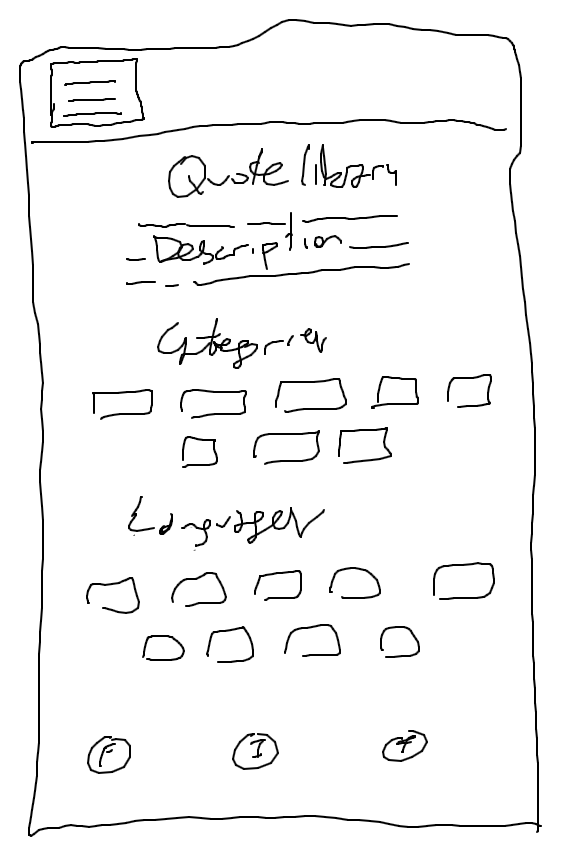 Quote library
Description
Categories
Languages
F I f